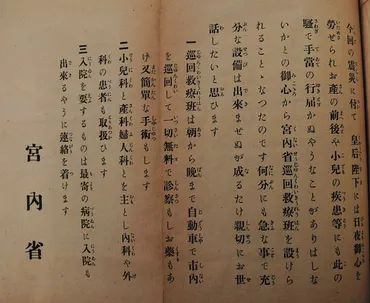 今回の震災に付て 皇后陛下には日夜御心を
勞せられお産の前後や小兒の疾患等にも此の
騒で手當の行届かぬやうなことがありはしな
いかとの御心から宮内省巡回救療班を設けら
れることゝなつたのです何分にも急な事で充
分な設備は出來ませぬが成るたけ親切にお世
話したいと思ひます
一 巡回救療班は朝から晩まで自動車で市内
を巡回して一切無料で診察もしお藥もあ
げ又簡單な手術もします
二 小兒科と產科婦人科とを主とし內科や外
科の患者も取扱ひます
三 入院を要するものは最寄の病院に入院も
出來るやうに連絡を着けます
宮內省